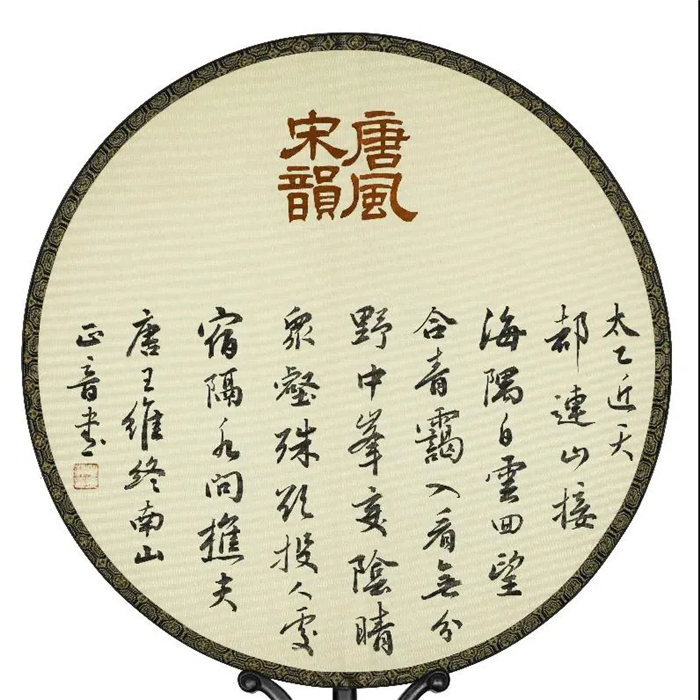 唐風
宋韻
太乙近天
都連山接
海隅白雲回望
合青靄入看無分
野中峯变陰晴
衆壑殊欲投人處
宿隔水問樵夫
唐王維終南山
正音书